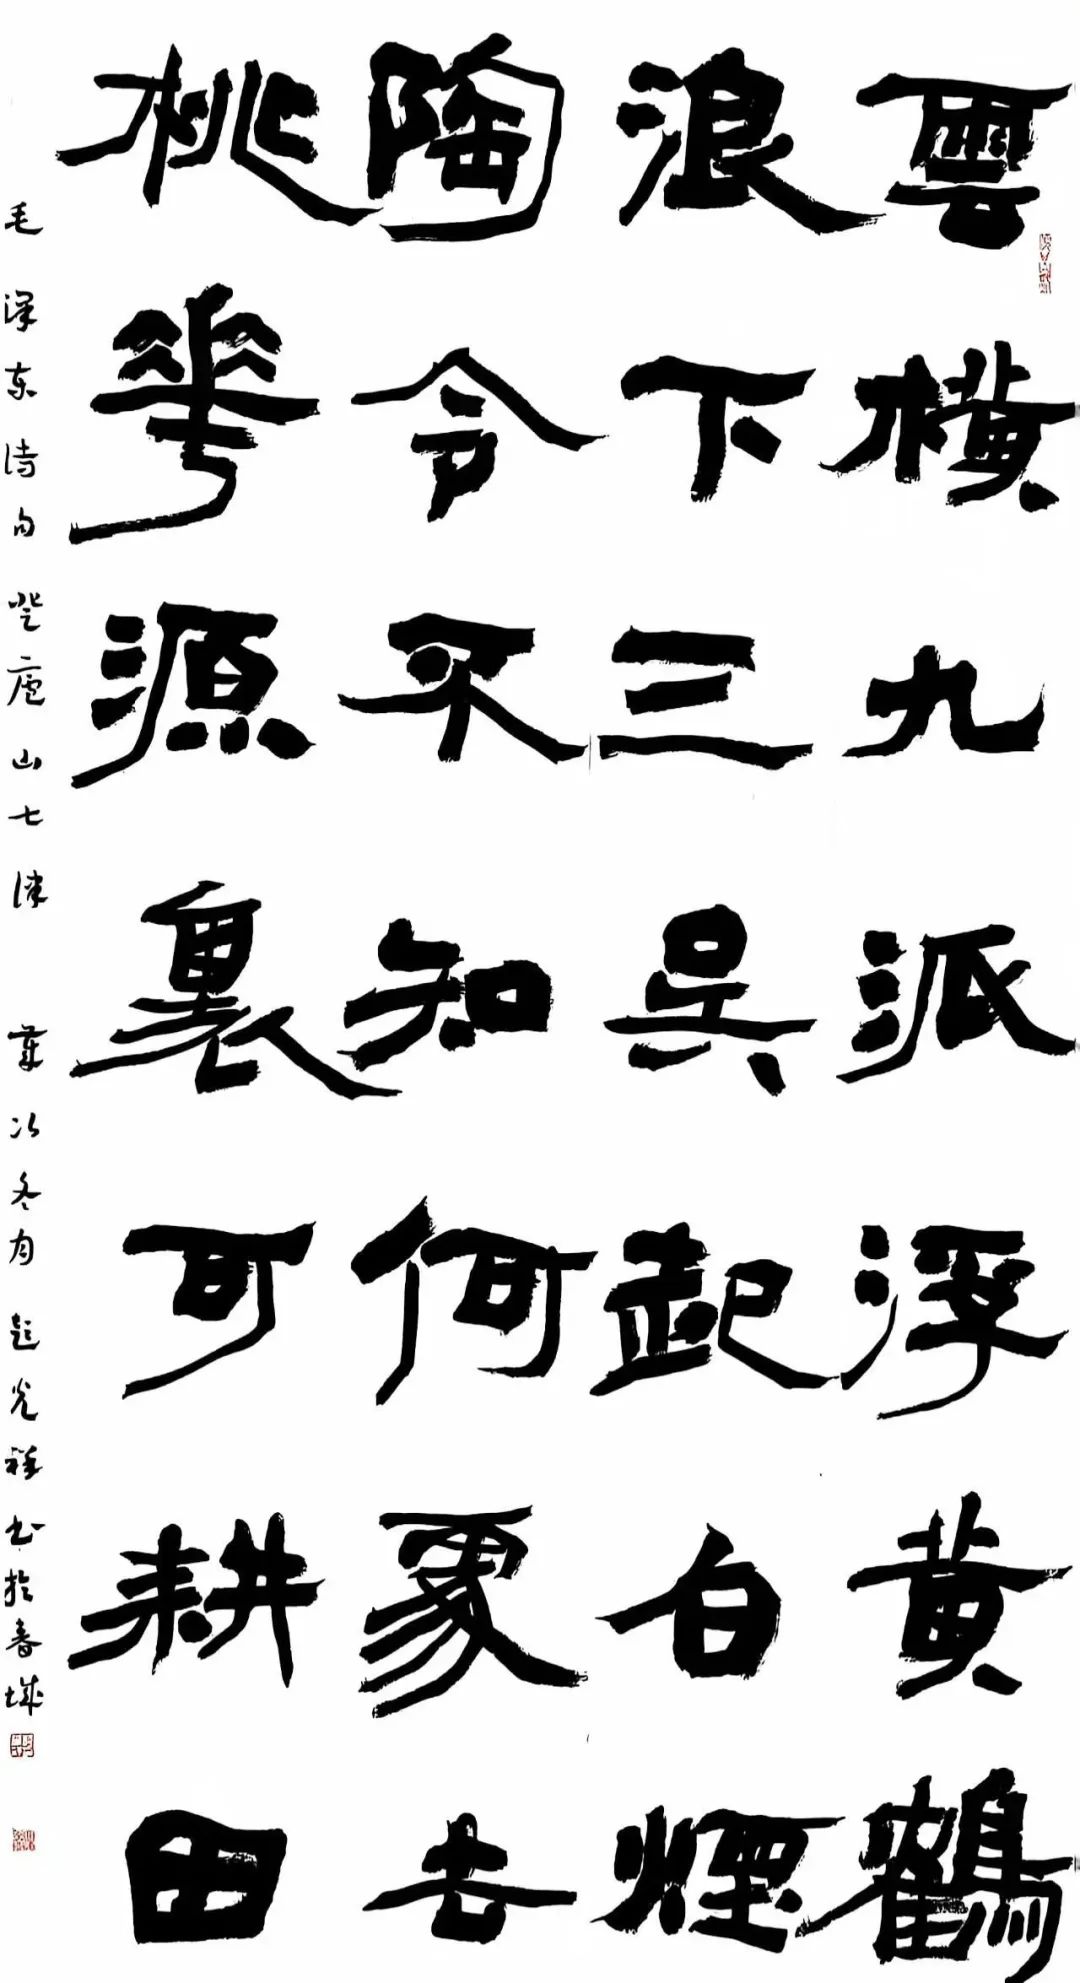 雲橫九派浮黃鶴
浪下三吳起白煙
陶令不知何處去
桃華源裏可耕田
毛泽东诗句登廬山七律 次冬月 光祥书於春城